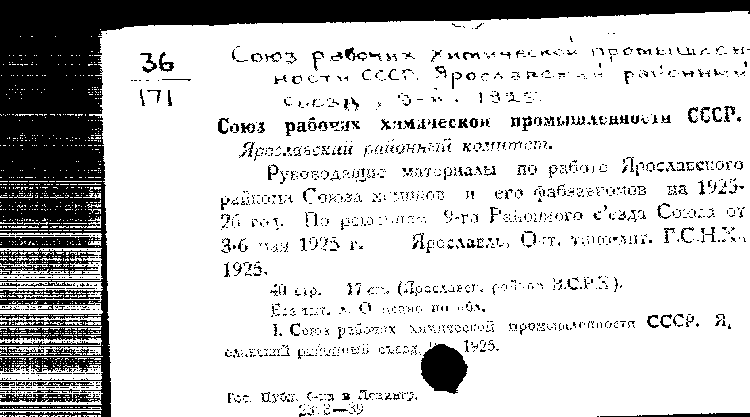 36
171
Союз рабочих химической промышлен-
ности СССР. Ярославский районный
съезд, 9-й. 1925.
Союз рабочих химической промышленности СССР.
Ярославский районный комитет.
Руководящие материалы по работе Ярославского
райкома Союза химиков и его фабзавкомов на 1925-
26 год. По решениям 9-го Районного с'езда Союза от
3-6 мая 1925 г. Ярославль, Окт. типо-лит. Г.С.Н.Х.,
1925.
40 стр. 17 см. (Ярославск. райком В.С.Р.Х).
Без тит. л. Описано по обл.
1. Союз рабочих химической промышленности СССР. Я.
славский районный съезд 1925.
Гос. Публ. б-ка в Ленингр.
39